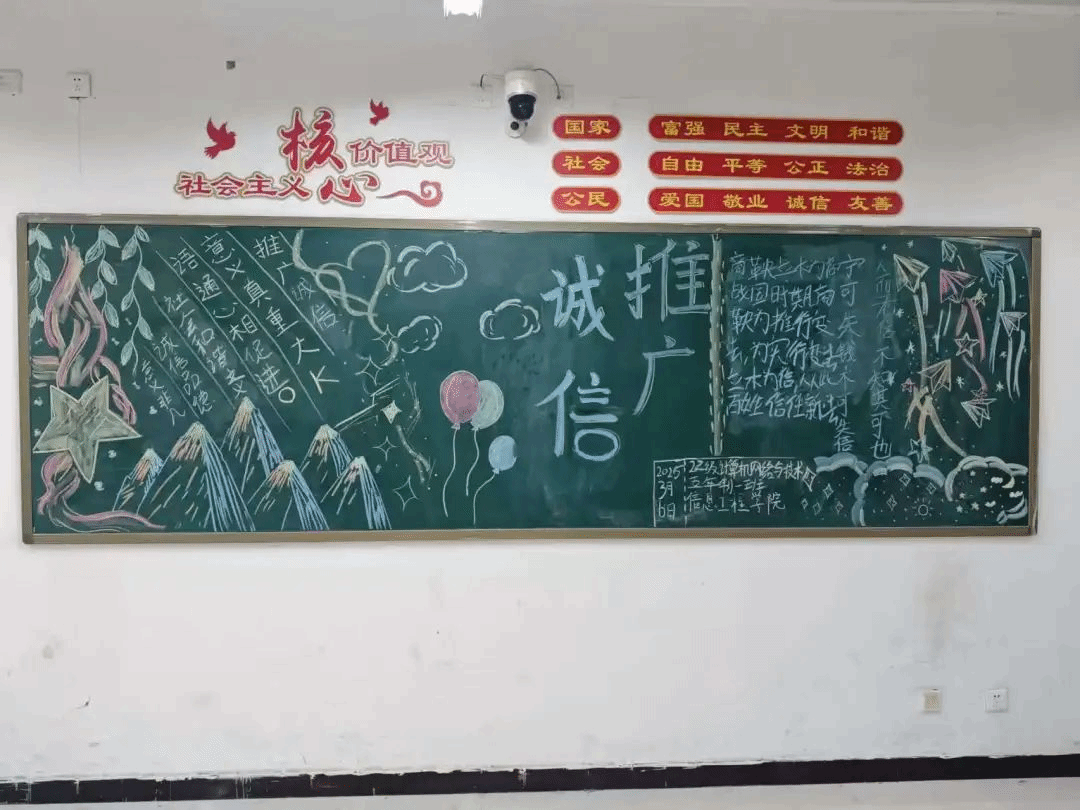 社会主义核心价值观
国家 富强 民主 文明 和谐
社会 自由 平等 公正 法治
公民 爱国 敬业 诚信 友善
推广诚信
意义真重大
语通心相促进。
社会和谐
诚信品德
推广
诚信
商鞅立木为信
战国时期商
鞅为推行变
法,为实行
立木为信从此
百姓信任新法
宁可失钱不可失信
人而不信不知其可也
2025
3月
6日
22级计算机网络与技术
五年制一班
信息工程学院